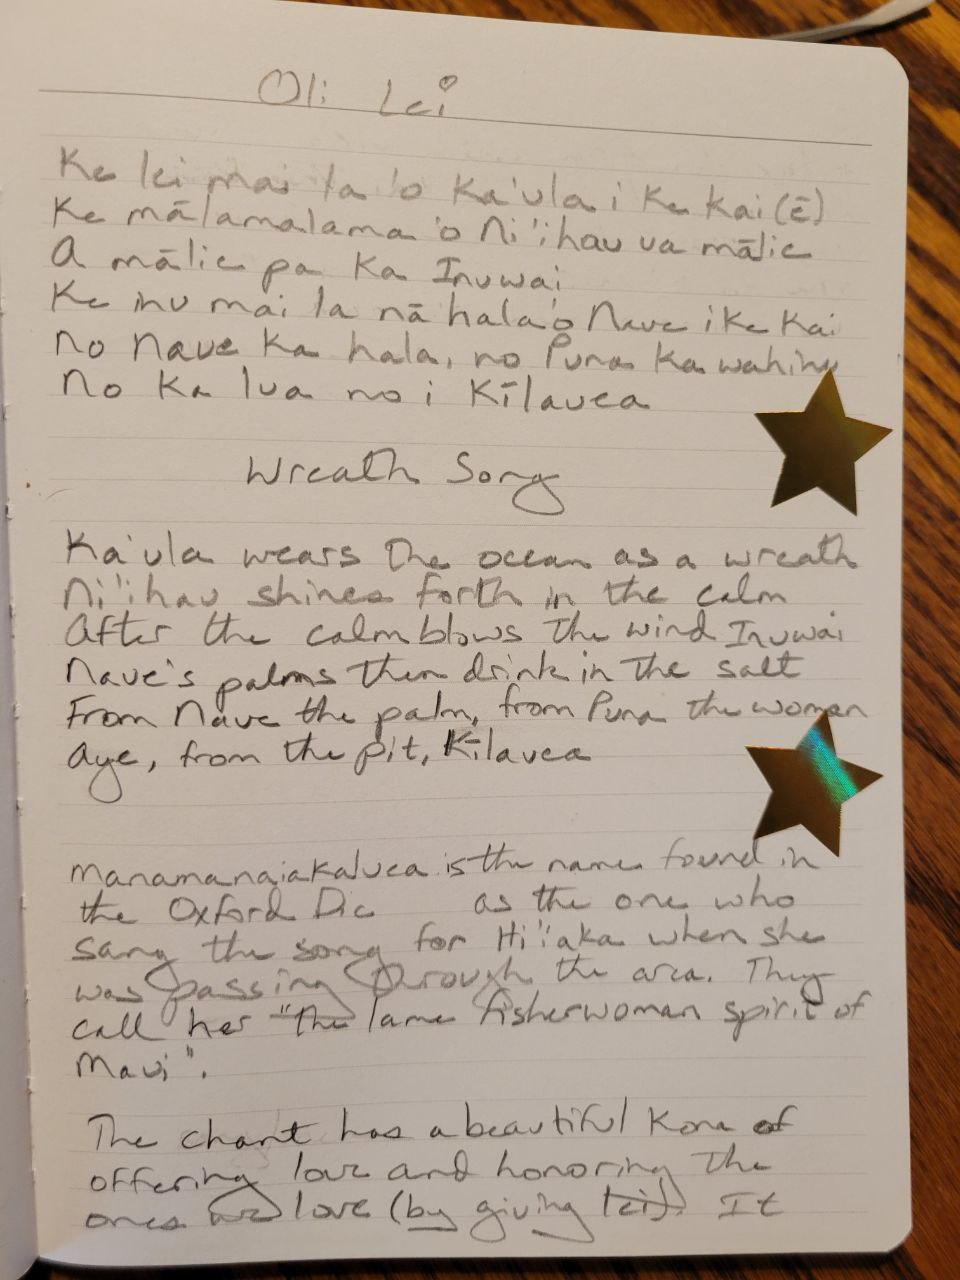 Oli Lei
Ke lei mai la 'o Ka'ula i ke kai (ē)
Ke mālamalama 'o Ni'ihau ua mālie
A mālie pa ka Inuwai
Ke inu mai la nā hala 'o Naue i ke kai
No Naue ka hala, no Puna ka wahine
No ka lua no i Kīlauea
Wreath Song
Ka'ula wears the ocean as a wreath
Ni'ihau shines forth in the calm
After the calm blows the wind Inuwai
Naue's palms then drink in the salt
From Naue the palm, from Puna the woman
Aye, from the pit, Kīlauea
Manamanaiakaluea is the name found in
the Oxford Dic as the one who
sang the song for Hi'iaka when she
was passing through the area. They
call her "the lame fisherwoman spirit of
Maui".
The chant has a beautiful Kona of
offering love and honoring the
ones we love (by giving lei). It